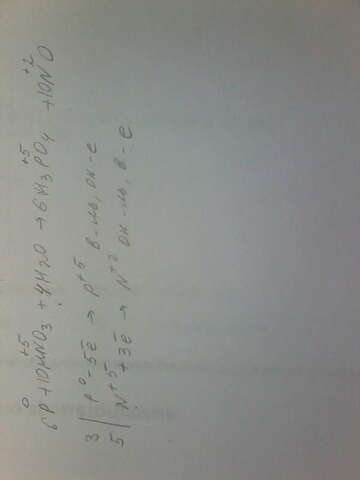 0 +5 +5 +2
6P + 10HNO3 + 4H2O → 6H3PO4 + 10NO
3 | P0 - 5ē → P+5 в-ль, ок-е
5 | N+5 + 3ē → N+2 ок-ль, в-е